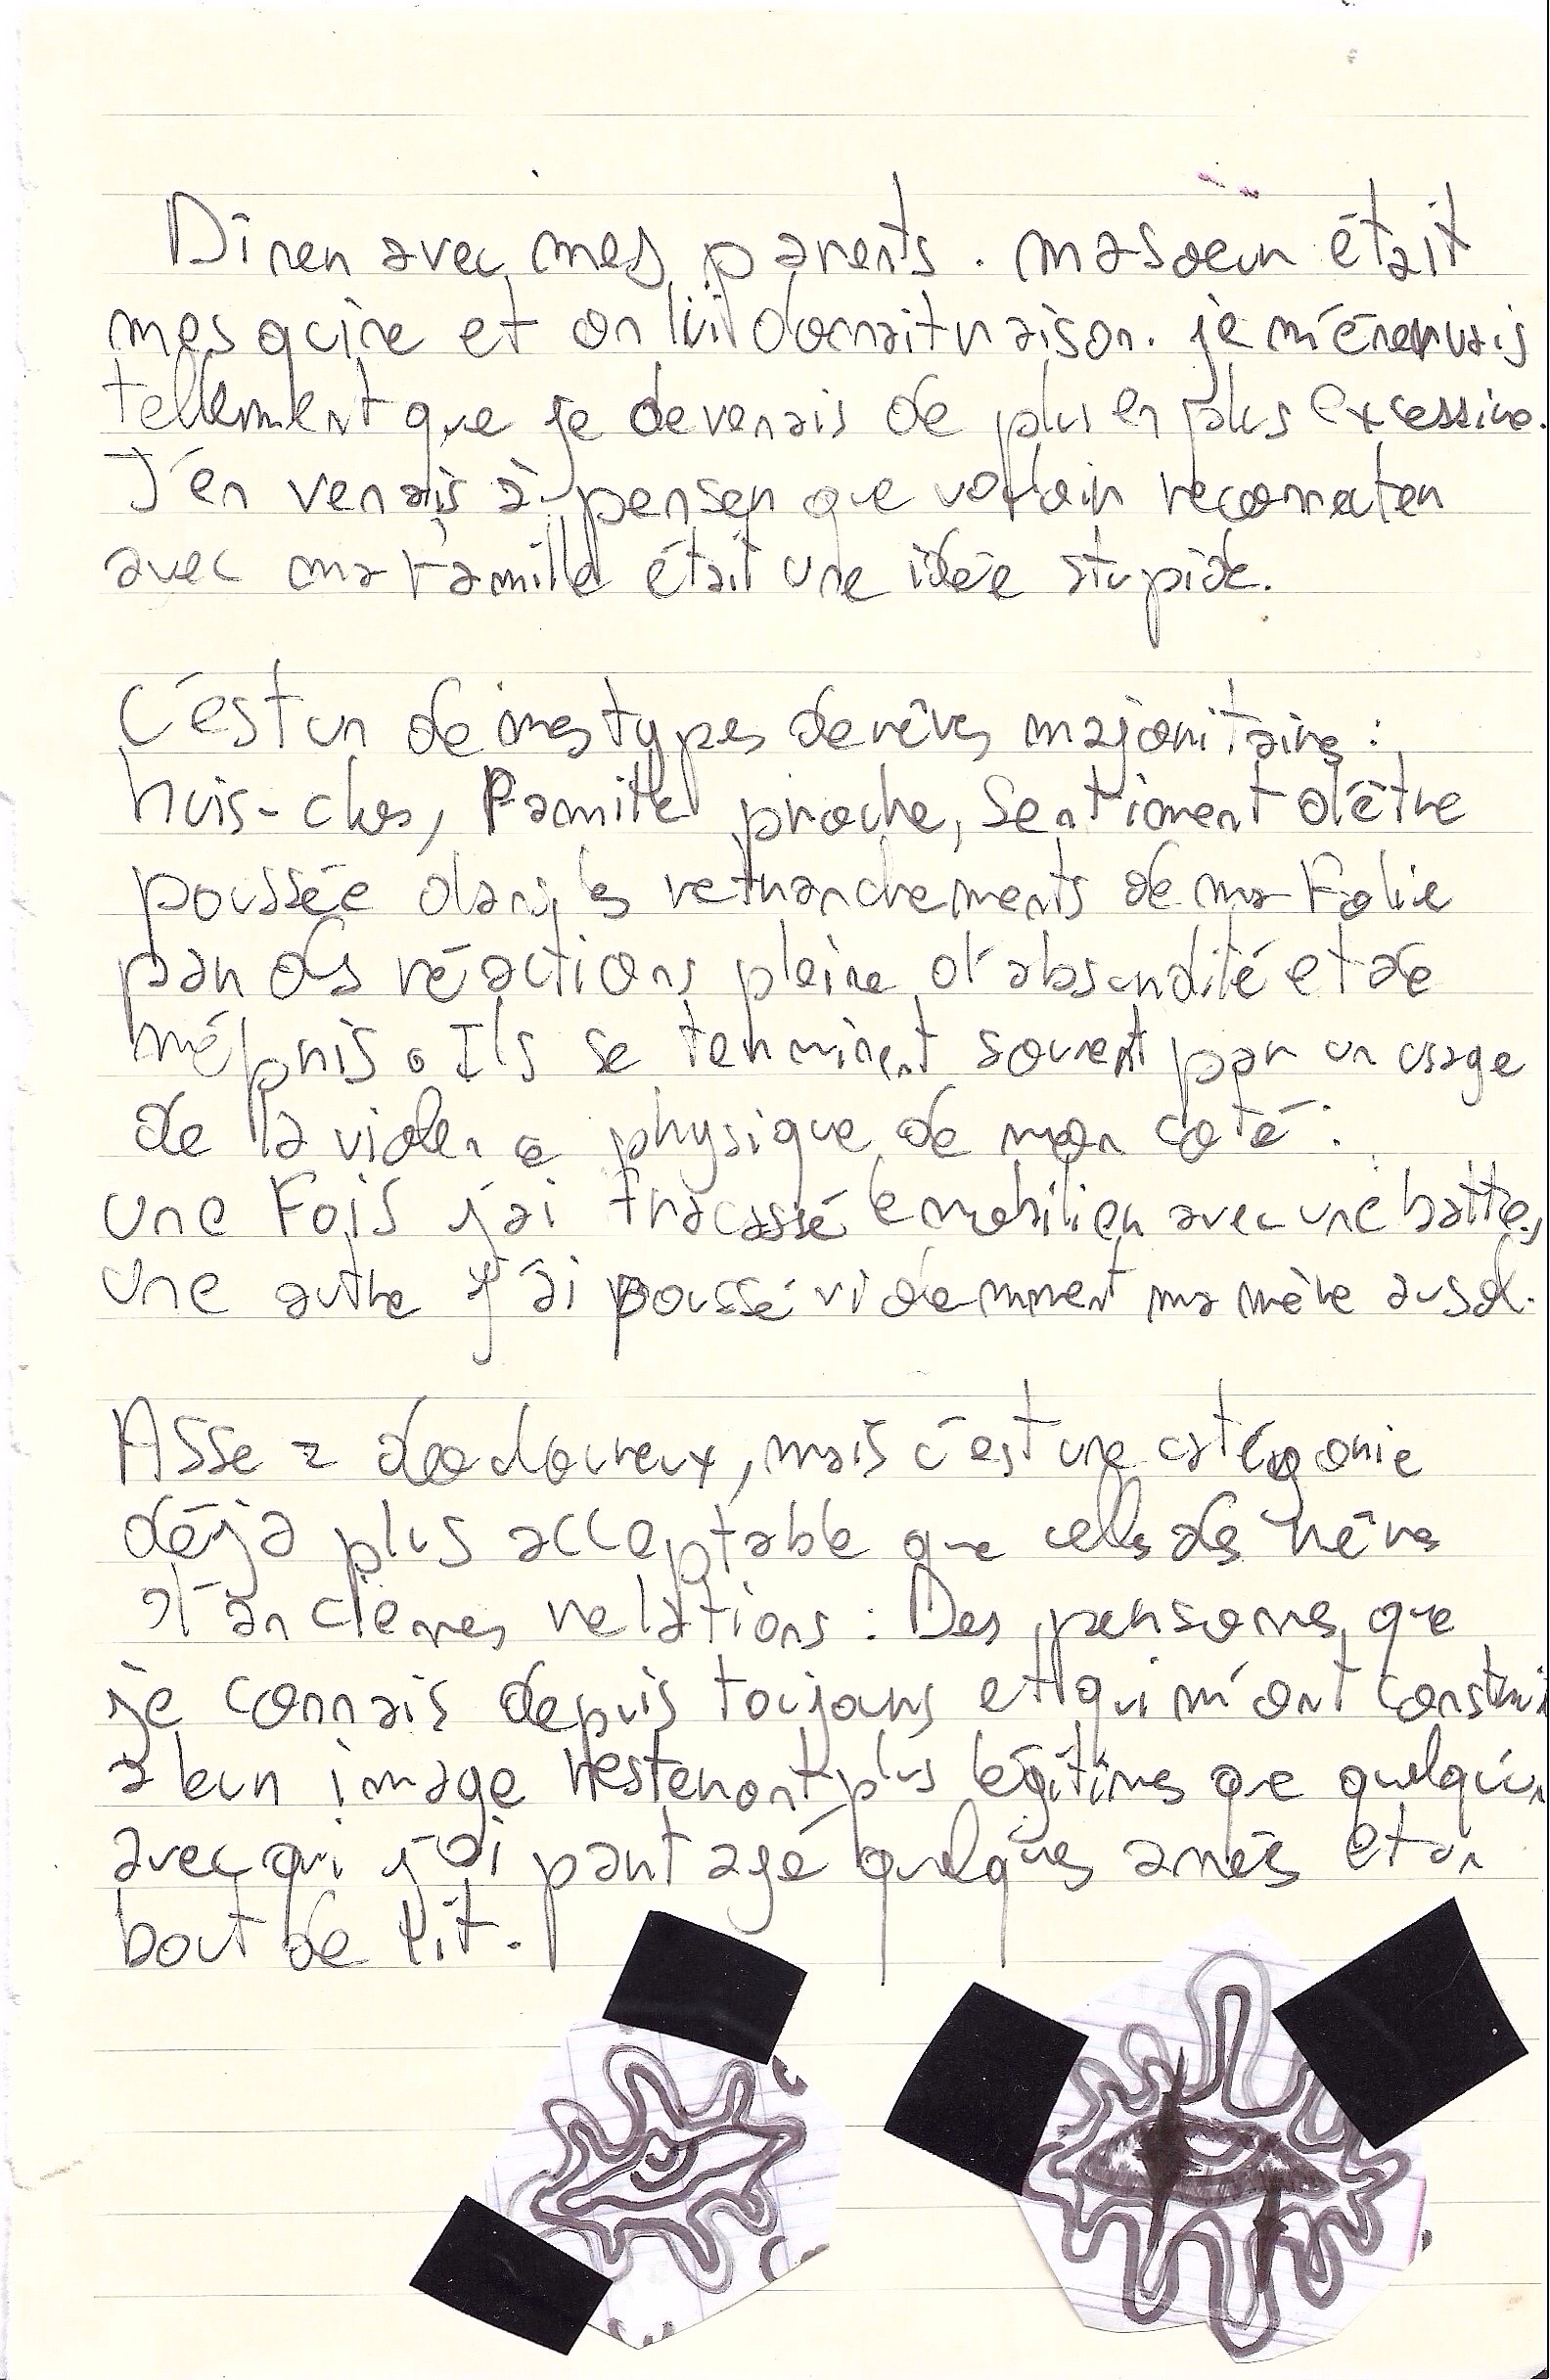 Dîner avec mes parents. ma soeur était
mesquine et on lui donnait raison. je m'énervais
tellement que je devenais de plus en plus excessive.
J'en venais à penser que vouloir reconnecter
avec ma famille était une idée stupide.
C'est un de mes types de rêves majoritaires :
huis-clos, Famille proche, Sentiment d'être
poussée dans les retranchements de ma Folie
par des réactions pleine d'absurdité et de
mépris. Ils se terminent souvent par un usage
de la violence physique de mon coté :
une Fois j'ai fracassé le mobilier avec une batte,
une autre j'ai poussé violemment ma mère au sol.
Assez douloureux, mais c'est une catégorie
déjà plus acceptable que celle des rêves
d'anciennes relations : Des personnes que
je connais depuis toujours et qui m'ont construit
à leur image resteront plus légitimes que quelqu'un
avec qui j'ai partagé quelques années et un
bout de lit.